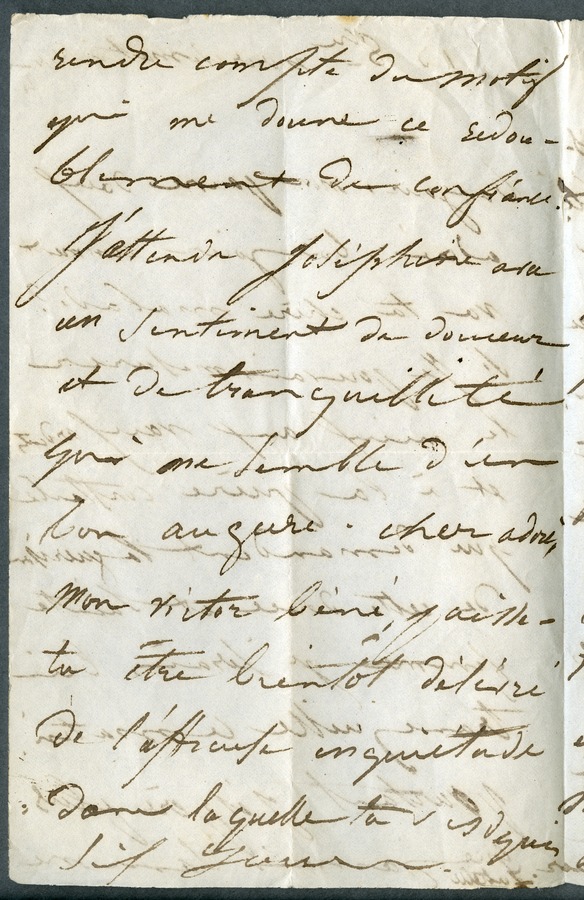 rendre compte du motif
qui me donne ce redou-
blement de confiance.
J'attends Joséphine avec
un sentiment de douceur
et de tranquillité
qui me semble d'un
bon augure. cher adoré,
mon victor béni, puisse-
tu être bientôt délivré
de l'affreuse inquiétude
dans laquelle tu vis depuis
six jours